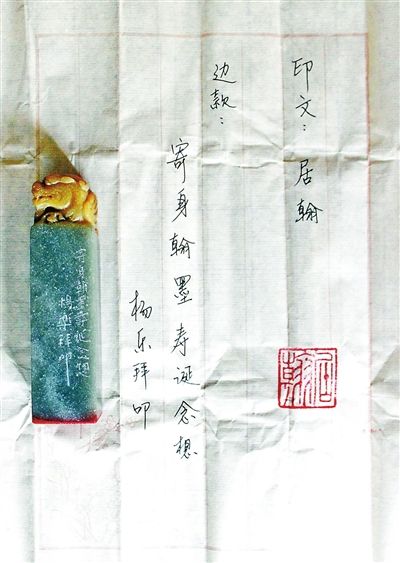 印文：居翰
边款：
寄身翰墨寿诞念想
杨乐拜叩
居翰
寄身翰墨寿诞念想
楊樂拜叩